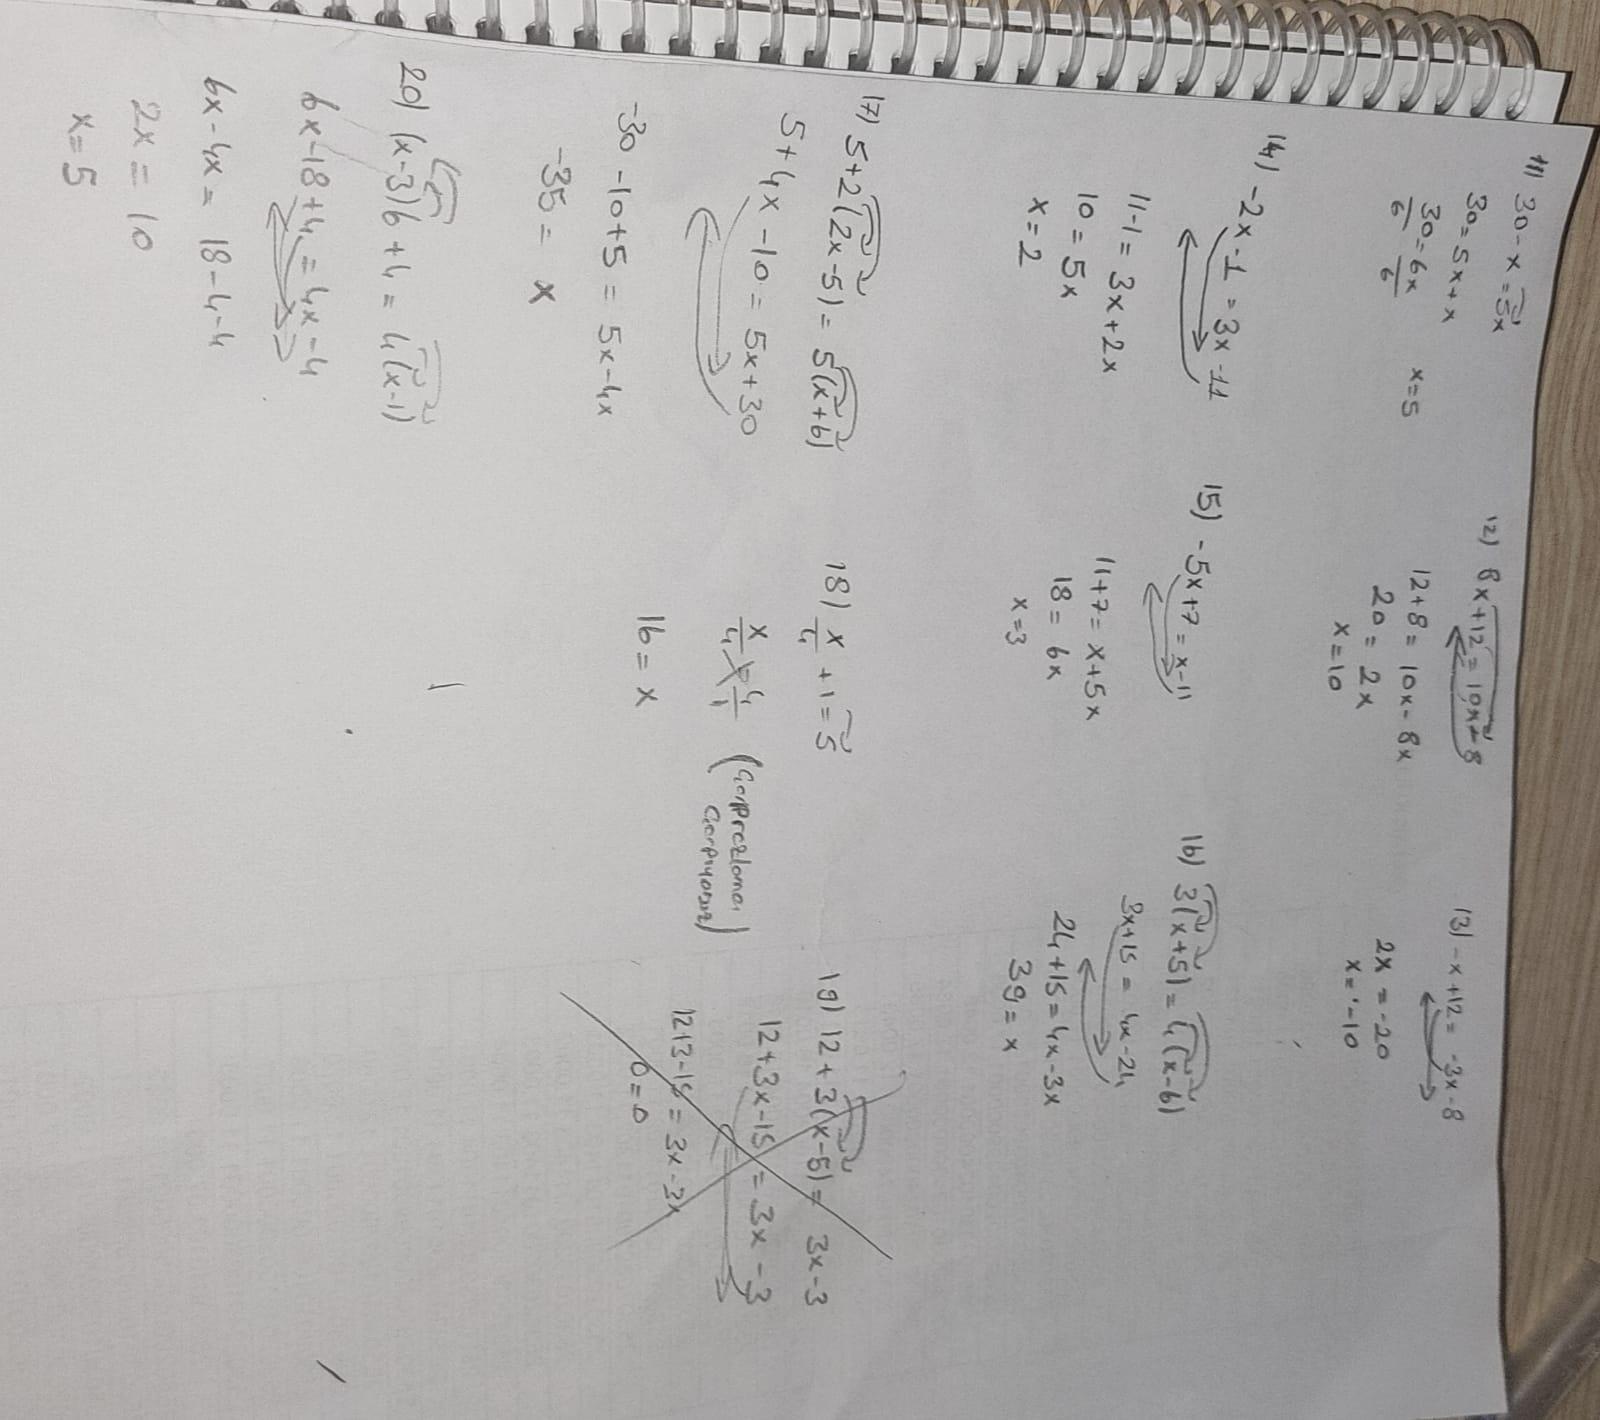 11) 30 - x = 5x
30 = 5x + x
30/6 = 6x/6
x = 5
12) 8x + 12 = 10x - 8
12 + 8 = 10x - 8x
20 = 2x
x = 10
13) -x + 12 = -3x - 8
2x = -20
x = -10
14) -2x - 1 = 3x - 11
11 - 1 = 3x + 2x
10 = 5x
x = 2
15) -5x + 7 = x - 11
11 + 7 = x + 5x
18 = 6x
x = 3
16) 3(x + 5) = 4(x - 6)
3x + 15 = 4x - 24
24 + 15 = 4x - 3x
39 = x
17) 5 + 2(2x - 5) = 5(x + 6)
5 + 4x - 10 = 5x + 30
-30 - 10 + 5 = 5x - 4x
-35 = x
18) x/4 + 1 = 5
x/4 = 4/1
16 = x
19) 12 + 3(x - 5) = 3x - 3
12 + 3x - 15 = 3x - 3
12 + 3 - 15 = 3x - 3x
0 = 0
20) (x - 3)6 + 4 = 4(x - 1)
6x - 18 + 4 = 4x - 4
6x - 4x = 18 - 4 - 4
2x = 10
x = 5